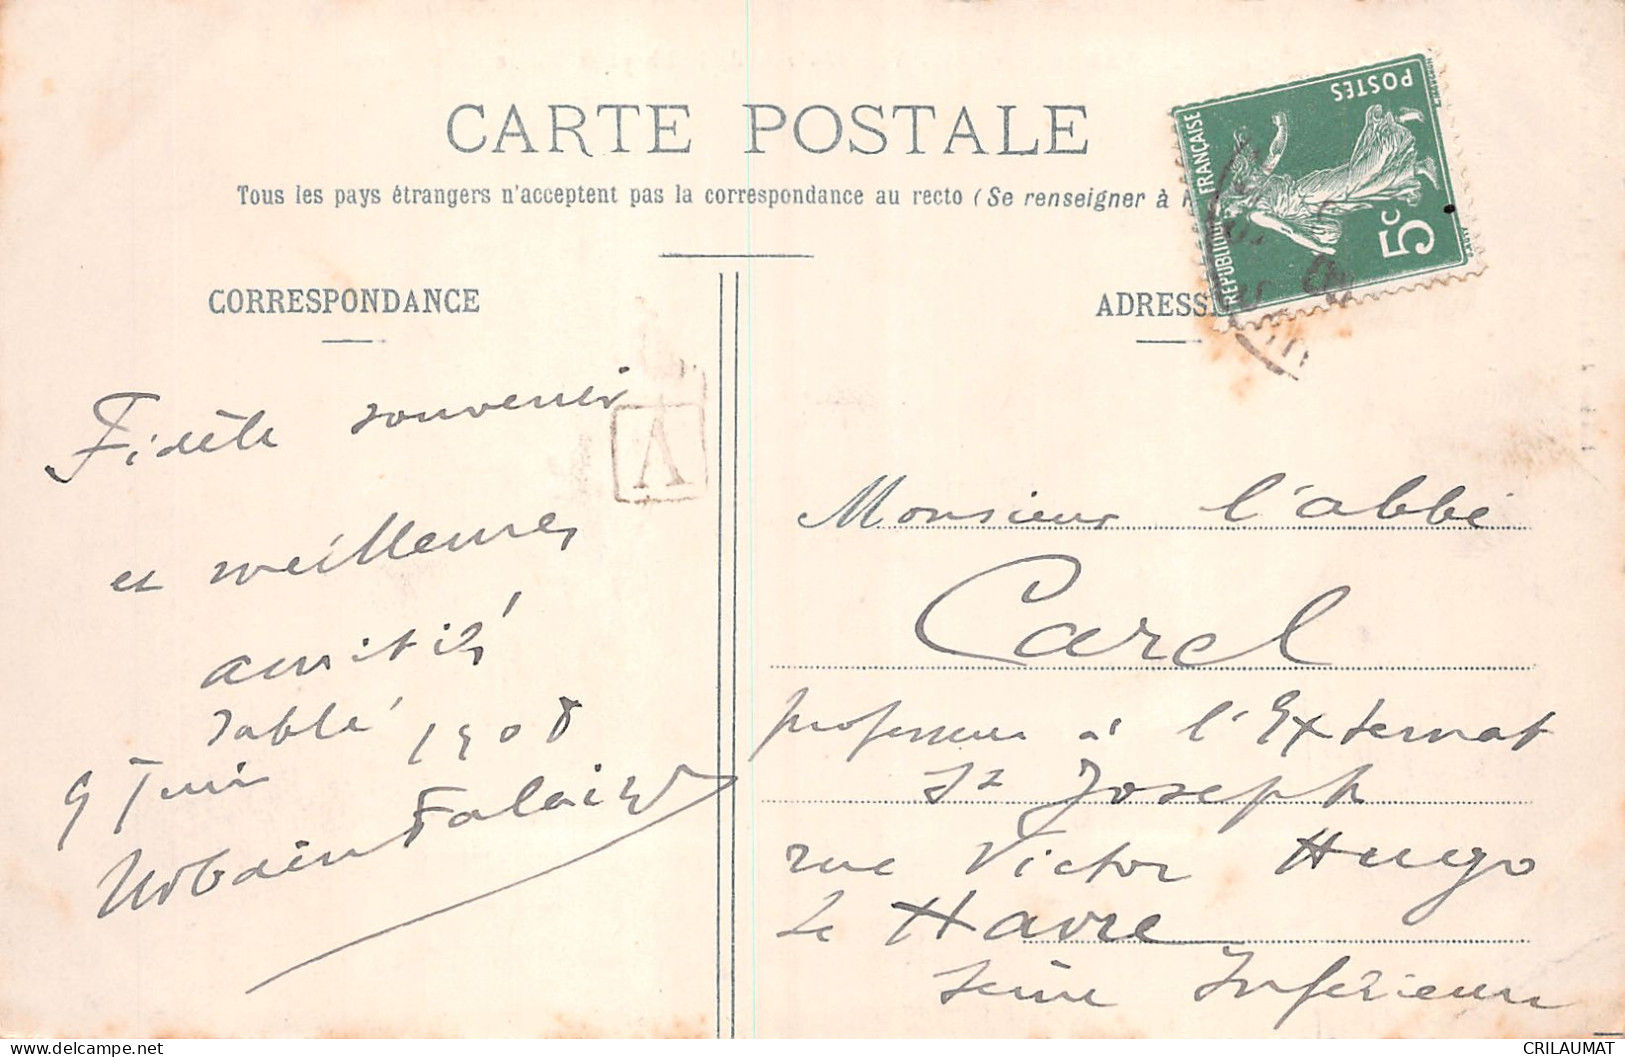 CARTE POSTALE
Tous les pays étrangers n'acceptent pas la correspondance au recto (Se renseigner à
CORRESPONDANCE
ADRESS
RÉPUBLIQUE FRANÇAISE
POSTES
5c
V
Fidèle souvenir
et meilleures
amitiés
Sablé
9 Juin 1908
Urbain
Monsieur l'abbé
Carel
professeur à l'Externat
St Joseph
rue Victor Hugo
Le Havre
Seine Inférieure
delcampe.net
CRILAUMAT